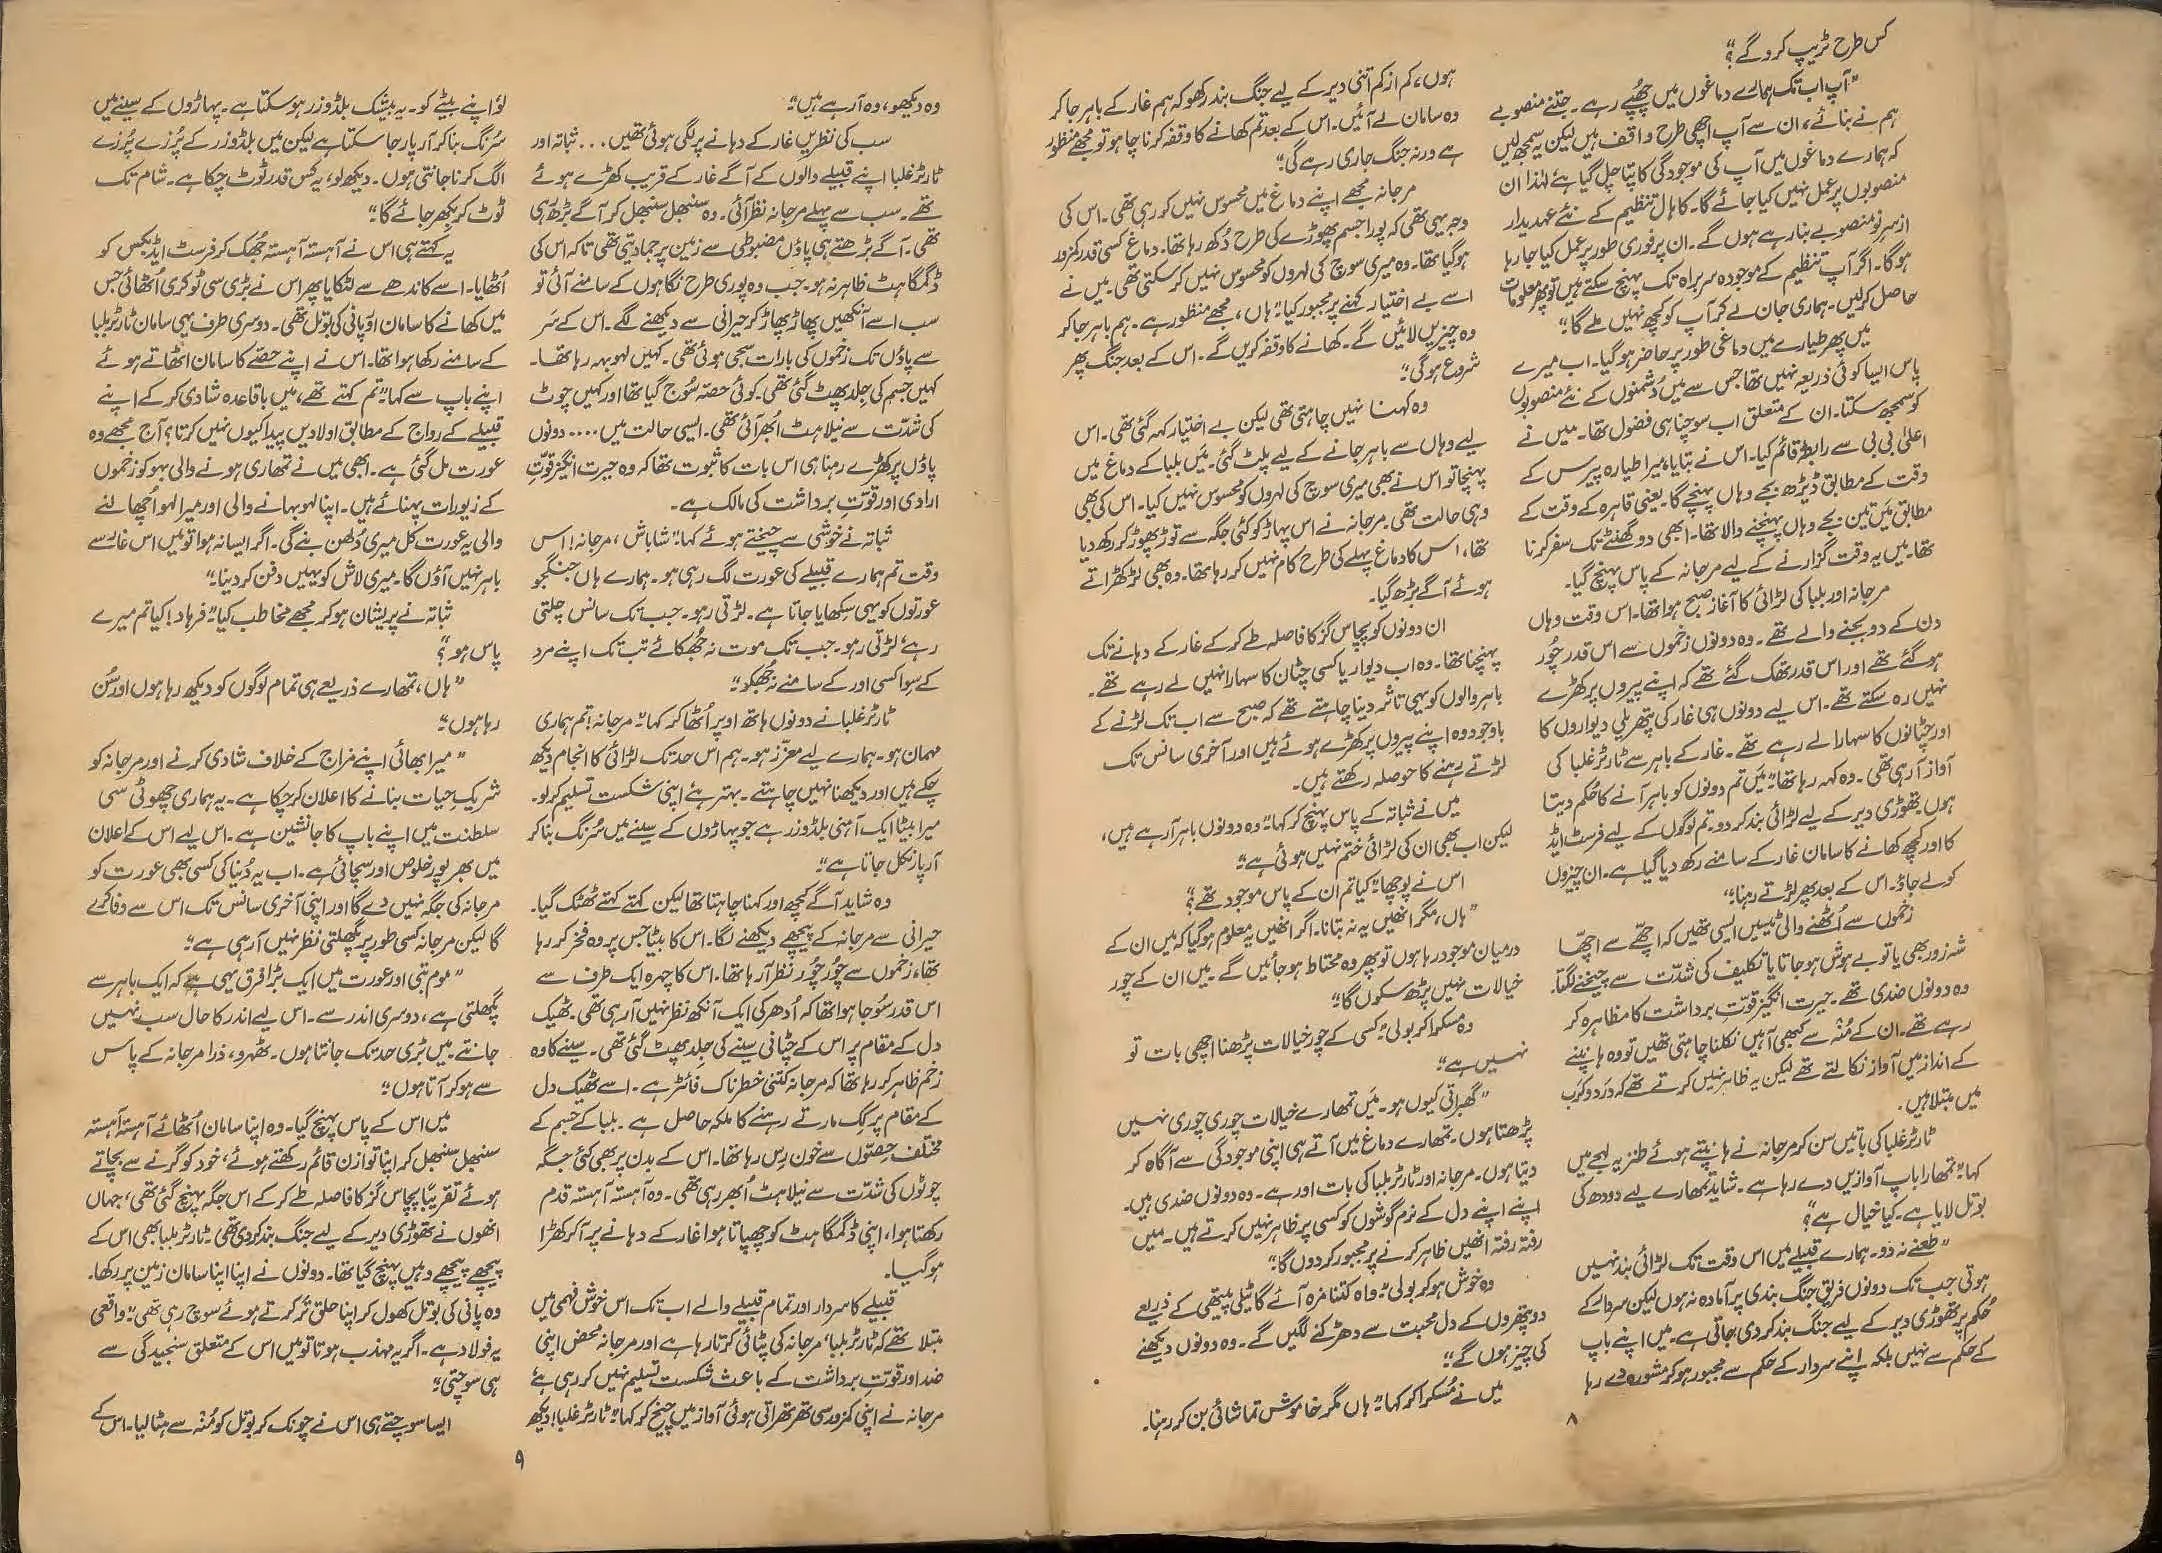 کس طرح ٹریپ کرو گے؟"
"آپ اب تک ہمارے دماغوں میں چھپے رہے۔ جتنے منصوبے
ہم نے بنائے، ان سے آپ اچھی طرح واقف ہیں لیکن یہ سمجھ لیں
کہ ہمارے دماغوں میں آپ کی موجودگی کا پتا چل گیا ہے لہٰذا ان
منصوبوں پر عمل نہیں کیا جائے گا۔ کاہال تنظیم کے نئے عہدیدار
ازسرِنو منصوبے بنا رہے ہوں گے۔ ان پر فوری طور پر عمل کیا جا رہا
ہو گا۔ اگر آپ تنظیم کے موجودہ سربراہ تک پہنچ سکتے ہیں تو پھر معلومات
حاصل کرلیں۔ ہماری جان لے کر آپ کو کچھ نہیں ملے گا۔"
میں پھر طیارے میں دماغی طور پر حاضر ہو گیا۔ اب میرے
پاس ایسا کوئی ذریعہ نہیں تھا جس سے میں دُشمنوں کے نئے منصوبوں
کو سمجھ سکتا۔ ان کے متعلق اب سوچنا ہی فضول تھا۔ میں نے
اعلیٰ بی بی سے رابطہ قائم کیا۔ اس نے بتایا، میرا طیارہ پیرس کے
وقت کے مطابق ڈیڑھ بجے وہاں پہنچے گا یعنی قاہرہ کے وقت کے
مطابق میں تین بجے وہاں پہنچنے والا تھا۔ ابھی دو گھنٹے تک سفر کرنا
تھا۔ میں یہ وقت گزارنے کے لیے مرجانہ کے پاس پہنچ گیا۔
مرجانہ اور بلبا کی لڑائی کا آغاز صبح ہوا تھا۔ اس وقت وہاں
دن کے دو بجنے والے تھے۔ وہ دونوں زخموں سے اس قدر چُور
ہو گئے تھے اور اس قدر تھک گئے تھے کہ اپنے پیروں پر کھڑے
نہیں رہ سکتے تھے۔ اس لیے دونوں ہی غار کی پتھریلی دیواروں کا
اور چٹانوں کا سہارا لے رہے تھے۔ غار کے باہر سے ٹارٹر غلبا کی
آواز آ رہی تھی۔ وہ کہہ رہا تھا۔ "میں تم دونوں کو باہر آنے کا حُکم دیتا
ہوں۔ تھوڑی دیر کے لیے لڑائی بند کر دو۔ تم لوگوں کے لیے فرسٹ ایڈ
کا اور کچھ کھانے کا سامان غار کے سامنے رکھ دیا گیا ہے۔ ان چیزوں
کو لے جاؤ۔ اس کے بعد پھر لڑتے رہنا۔"
زخموں سے اُٹھنے والی ٹیسیں ایسی تھیں کہ اچھے سے اچھّا
شہ زور بھی یا تو بے ہوش ہو جاتا یا تکلیف کی شدّت سے چیخنے لگتا۔
وہ دونوں ضدی تھے۔ حیرت انگیز قوّتِ برداشت کا مظاہرہ کر
رہے تھے۔ ان کے مُنہ سے کبھی آہیں نکلنا چاہتی تھیں تو وہ ہانپنے
کے انداز میں آواز نکالتے تھے لیکن یہ ظاہر نہیں کرتے تھے کہ درد و کرب
میں مبتلا ہیں۔
ٹارٹر غلبا کی باتیں سن کر مرجانہ نے ہانپتے ہوئے طنزیہ لہجے میں
کہا۔ "تمھارا باپ آوازیں دے رہا ہے۔ شاید تمھارے لیے دودھ کی
بوتل لایا ہے۔ کیا خیال ہے؟"
"طعنے نہ دو۔ ہمارے قبیلے میں اس وقت تک لڑائی بند نہیں
ہوتی جب تک دونوں فریق جنگ بندی پر آمادہ نہ ہوں لیکن سردار کے
حُکم پر تھوڑی دیر کے لیے جنگ بند کر دی جاتی ہے۔ میں اپنے باپ
کے حکم سے نہیں بلکہ اپنے سردار کے حکم سے مجبور ہو کر مشورہ دے رہا
ہوں، کم از کم اتنی دیر کے لیے جنگ بند رکھو کہ ہم غار کے باہر جا کر
وہ سامان لے آئیں۔ اس کے بعد تم کھانے کا وقفہ کرنا چاہو تو مجھے منظور
ہے ورنہ جنگ جاری رہے گی۔"
مرجانہ مجھے اپنے دماغ میں محسوس نہیں کر رہی تھی۔ اس کی
وجہ یہی تھی کہ پورا جسم پھوڑے کی طرح دُکھ رہا تھا۔ دماغ کسی قدر کمزور
ہو گیا تھا۔ وہ میری سوچ کی لہروں کو محسوس نہیں کر سکتی تھی۔ میں نے
اسے بے اختیار کہنے پر مجبور کیا۔ "ہاں، مجھے منظور ہے۔ ہم باہر جا کر
وہ چیزیں لائیں گے۔ کھانے کا وقفہ کریں گے۔ اس کے بعد جنگ پھر
شروع ہو گی۔"
وہ کہنا نہیں چاہتی تھی لیکن بے اختیار کہہ گئی تھی۔ اس
لیے وہاں سے باہر جانے کے لیے پلٹ گئی۔ میں بلبا کے دماغ میں
پہنچا تو اس نے بھی میری سوچ کی لہروں کو محسوس نہیں کیا۔ اس کی بھی
وہی حالت تھی۔ مرجانہ نے اس پہاڑ کو کئی جگہ سے توڑ پھوڑ کر رکھ دیا
تھا، اس کا دماغ پہلے کی طرح کام نہیں کر رہا تھا۔ وہ بھی لڑکھڑاتے
ہوئے آگے بڑھ گیا۔
ان دونوں کو پچاس گز کا فاصلہ طے کر کے غار کے دہانے تک
پہنچنا تھا۔ وہ اب دیوار یا کسی چٹان کا سہارا نہیں لے رہے تھے۔
باہر والوں کو یہی تاثر دینا چاہتے تھے کہ صبح سے اب تک لڑنے کے
باوجود وہ اپنے پیروں پر کھڑے ہوئے ہیں اور آخری سانس تک
لڑتے رہنے کا حوصلہ رکھتے ہیں۔
میں نے ثباتہ کے پاس پہنچ کر کہا۔ "وہ دونوں باہر آ رہے ہیں،
لیکن اب بھی ان کی لڑائی ختم نہیں ہوئی ہے۔"
اس نے پوچھا۔ "کیا تم ان کے پاس موجود تھے؟"
"ہاں، مگر انھیں یہ نہ بتانا۔ اگر انھیں یہ معلوم ہو گیا کہ میں ان کے
درمیان موجود رہا ہوں تو پھر وہ محتاط ہو جائیں گے۔ میں ان کے چور
خیالات نہیں پڑھ سکوں گا۔"
وہ مسکرا کر بولی۔ "کسی کے چور خیالات پڑھنا اچھی بات تو
نہیں ہے۔"
"گھبراتی کیوں ہو۔ میں تمھارے خیالات چوری چوری نہیں
پڑھتا ہوں۔ تمھارے دماغ میں آتے ہی اپنی موجودگی سے آگاہ کر
دیتا ہوں۔ مرجانہ اور ٹارٹر بلبا کی بات اور ہے۔ وہ دونوں ضدی ہیں۔
اپنے اپنے دل کے نرم گوشوں کو کسی پر ظاہر نہیں کرتے ہیں۔ میں
رفتہ رفتہ انھیں ظاہر کرنے پر مجبور کر دوں گا۔"
وہ خوش ہو کر بولی۔ "واہ کتنا مزہ آئے گا ٹیلی پیتھی کے ذریعے
دو پتھروں کے دل محبت سے دھڑکنے لگیں گے۔ وہ دونوں دیکھنے
کی چیز ہوں گے۔"
میں نے مُسکرا کر کہا۔ "ہاں مگر خاموش تماشائی بن کر رہنا۔
۸
وہ دیکھو، وہ آ رہے ہیں۔"
سب کی نظریں غار کے دہانے پر لگی ہوئی تھیں... ثباتہ اور
ٹارٹر غلبا اپنے قبیلے والوں کے آگے غار کے قریب کھڑے ہوئے
تھے۔ سب سے پہلے مرجانہ نظر آئی۔ وہ سنبھل سنبھل کر آگے بڑھ رہی
تھی۔ آگے بڑھتے ہی پاؤں مضبوطی سے زمین پر جما دیتی تھی تاکہ اس کی
ڈگمگاہٹ ظاہر نہ ہو۔ جب وہ پوری طرح نگاہوں کے سامنے آئی تو
سب اسے آنکھیں پھاڑ پھاڑ کر حیرانی سے دیکھنے لگے۔ اس کے سر
سے پاؤں تک زخموں کی بارات سجی ہوئی تھی۔ کہیں لہو بہہ رہا تھا۔
کہیں جسم کی جلد پھٹ گئی تھی۔ کوئی حصّہ سُوج گیا تھا اور کہیں چوٹ
کی شدّت سے نیلاہٹ اُبھر آئی تھی۔ ایسی حالت میں.... دونوں
پاؤں پر کھڑے رہنا ہی اس بات کا ثبوت تھا کہ وہ حیرت انگیز قوّتِ
ارادی اور قوّتِ برداشت کی مالک ہے۔
ثباتہ نے خوشی سے چیختے ہوئے کہا۔ "شاباش، مرجانہ! اس
وقت تم ہمارے قبیلے کی عورت لگ رہی ہو۔ ہمارے ہاں جنگجو
عورتوں کو یہی سکھایا جاتا ہے۔ لڑتی رہو۔ جب تک سانس چلتی
رہے، لڑتی رہو۔ جب تک موت نہ جُھکائے تب تک اپنے مرد
کے سوا کسی اور کے سامنے نہ جُھکو۔"
ٹارٹر غلبا نے دونوں ہاتھ اوپر اُٹھا کر کہا۔ "مرجانہ! تم ہماری
مہمان ہو۔ ہمارے لیے معزّز ہو۔ ہم اس حد تک لڑائی کا انجام دیکھ
چکے ہیں اور دیکھنا نہیں چاہتے۔ بہتر ہے اپنی شکست تسلیم کرلو۔
میرا بیٹا ایک آہنی بلڈوزر ہے جو پہاڑوں کے سینے میں سُرنگ بنا کر
آر پار نکل جاتا ہے۔"
وہ شاید آگے کچھ اور کہنا چاہتا تھا لیکن کہتے کہتے ٹھٹک گیا۔
حیرانی سے مرجانہ کے پیچھے دیکھنے لگا۔ اس کا بیٹا جس پر وہ فخر کر رہا
تھا، زخموں سے چُور چُور نظر آ رہا تھا۔ اس کا چہرہ ایک طرف سے
اس قدر سُوجا ہوا تھا کہ اُدھر کی ایک آنکھ نظر نہیں آ رہی تھی۔ ٹھیک
دل کے مقام پر اس کے چٹانی سینے کی جلد پھٹ گئی تھی۔ سینے کا وہ
زخم ظاہر کر رہا تھا کہ مرجانہ کتنی خطرناک فائٹر ہے۔ اسے ٹھیک دل
کے مقام پر کِک مارتے رہنے کا ملکہ حاصل ہے۔ بلبا کے جسم کے
مختلف حصّوں سے خون رِس رہا تھا۔ اس کے بدن پر بھی کئی جگہ
چوٹوں کی شدّت سے نیلاہٹ اُبھر رہی تھی۔ وہ آہستہ آہستہ قدم
رکھتا ہوا، اپنی ڈگمگاہٹ کو چھپاتا ہوا غار کے دہانے پر آ کر کھڑا
ہو گیا۔
قبیلے کا سردار اور تمام قبیلے والے اب تک اس خوش فہمی میں
مبتلا تھے کہ ٹارٹر بلبا، مرجانہ کی پٹائی کرتا رہا ہے اور مرجانہ محض اپنی
ضد اور قوّتِ برداشت کے باعث شکست تسلیم نہیں کر رہی ہے
مرجانہ نے اپنی کمزور سی تھرتھراتی ہوئی آواز میں چیخ کر کہا۔ "ٹارٹر غلبا! دیکھ
لو اپنے بیٹے کو۔ یہ بیشک بلڈوزر ہو سکتا ہے۔ پہاڑوں کے سینے میں
سُرنگ بنا کر آر پار جا سکتا ہے لیکن میں بلڈوزر کے پُرزے پُرزے
الگ کرنا جانتی ہوں۔ دیکھ لو، یہ کس قدر ٹوٹ چکا ہے۔ شام تک
ٹوٹ کر بکھر جائے گا۔"
یہ کہتے ہی اس نے آہستہ آہستہ جُھک کر فرسٹ ایڈ بکس کو
اُٹھایا۔ اسے کاندھے سے لٹکایا پھر اس نے بڑی سی ٹوکری اُٹھائی جس
میں کھانے کا سامان اور پانی کی بوتل تھی۔ دوسری طرف یہی سامان ٹارٹر بلبا
کے سامنے رکھا ہوا تھا۔ اس نے اپنے حصّے کا سامان اٹھاتے ہوئے
اپنے باپ سے کہا۔ "تم کہتے تھے، میں باقاعدہ شادی کر کے اپنے
قبیلے کے رواج کے مطابق اولادیں پیدا کیوں نہیں کرتا؟ آج مجھے وہ
عورت مل گئی ہے۔ ابھی میں نے تمھاری ہونے والی بہو کو زخموں
کے زیورات پہنائے ہیں۔ اپنا لہو بہانے والی اور میرا لہو اُچھالنے
والی یہ عورت کل میری دُلھن بنے گی۔ اگر ایسا نہ ہوا تو میں اس غار سے
باہر نہیں آؤں گا۔ میری لاش کو یہیں دفن کر دینا۔"
ثباتہ نے پریشان ہو کر مجھے مخاطب کیا۔ "فرہاد! کیا تم میرے
پاس ہو؟"
"ہاں، تمھارے ذریعے ہی تمام لوگوں کو دیکھ رہا ہوں اور سُن
رہا ہوں۔"
"میرا بھائی اپنے مزاج کے خلاف شادی کرنے اور مرجانہ کو
شریکِ حیات بنانے کا اعلان کر چکا ہے۔ یہ ہماری چھوٹی سی
سلطنت میں اپنے باپ کا جانشین ہے۔ اس لیے اس کے اعلان
میں بھرپور خلوص اور سچائی ہے۔ اب یہ دُنیا کی کسی بھی عورت کو
مرجانہ کی جگہ نہیں دے گا اور اپنی آخری سانس تک اس سے وفا کرے
گا لیکن مرجانہ کسی طور پر پگھلتی نظر نہیں آ رہی ہے۔"
"موم بتی اور عورت میں ایک بڑا فرق یہی ہے کہ ایک باہر سے
پگھلتی ہے، دوسری اندر سے۔ اس لیے اندر کا حال سب نہیں
جانتے۔ میں بڑی حد تک جانتا ہوں۔ ٹھہرو، ذرا مرجانہ کے پاس
سے ہو کر آتا ہوں۔"
میں اس کے پاس پہنچ گیا۔ وہ اپنا سامان اُٹھائے آہستہ آہستہ
سنبھل سنبھل کر اپنا توازن قائم رکھتے ہوئے، خود کو گرنے سے بچاتے
ہوئے تقریباً پچاس گز کا فاصلہ طے کر کے اس جگہ پہنچ گئی تھی، جہاں
انھوں نے تھوڑی دیر کے لیے جنگ بند کر دی تھی۔ ٹارٹر بلبا بھی اس کے
پیچھے پیچھے وہیں پہنچ گیا تھا۔ دونوں نے اپنا اپنا سامان زمین پر رکھا۔
وہ پانی کی بوتل کھول کر اپنا حلق تر کرتے ہوئے سوچ رہی تھی۔ "واقعی
یہ فولاد ہے۔ اگر یہ مہذب ہوتا تو میں اس کے متعلق سنجیدگی سے
ہی سوچتی۔"
ایسا سوچتے ہی اس نے چونک کر بوتل کو مُنہ سے ہٹا لیا۔ اس کے
۹